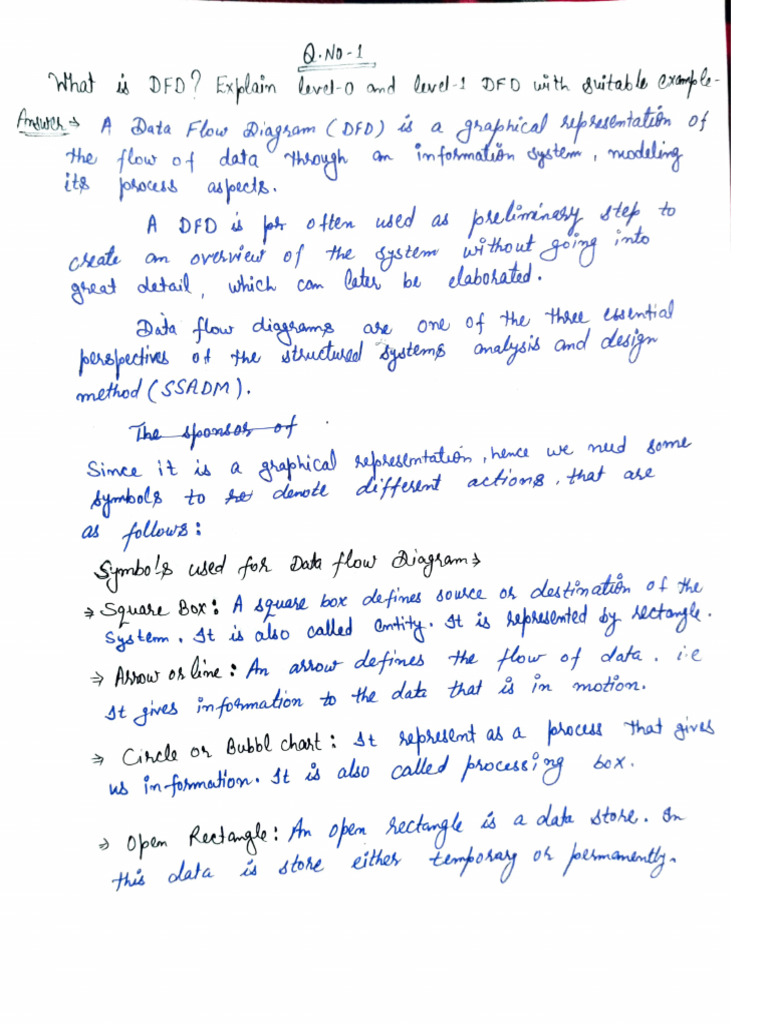 Q.No-1
What is DFD? Explain level-0 and level-1 DFD with suitable example-
Answer → A Data Flow Diagram (DFD) is a graphical representation of
the flow of data through an information system, modeling
its process aspects.
A DFD is often used as preliminary step to
create an overview of the system without going into
great detail, which can later be elaborated.
Data flow diagrams are one of the three essential
perspectives of the structured systems analysis and design
method (SSADM).
The sponsor of
Since it is a graphical representation, hence we need some
symbols to denote different actions, that are
as follows:
Symbols used for Data flow Diagram →
⇒ Square Box: A square box defines source or destination of the
system. It is also called entity. It is represented by rectangle.
⇒ Arrow or line: An arrow defines the flow of data. i.e
It gives information to the data that is in motion.
⇒ Circle or Bubbl chart: It represent as a process that gives
us information. It is also called processing box.
⇒ Open Rectangle: An open rectangle is a data store. In
this data is store either temporary or permanently.